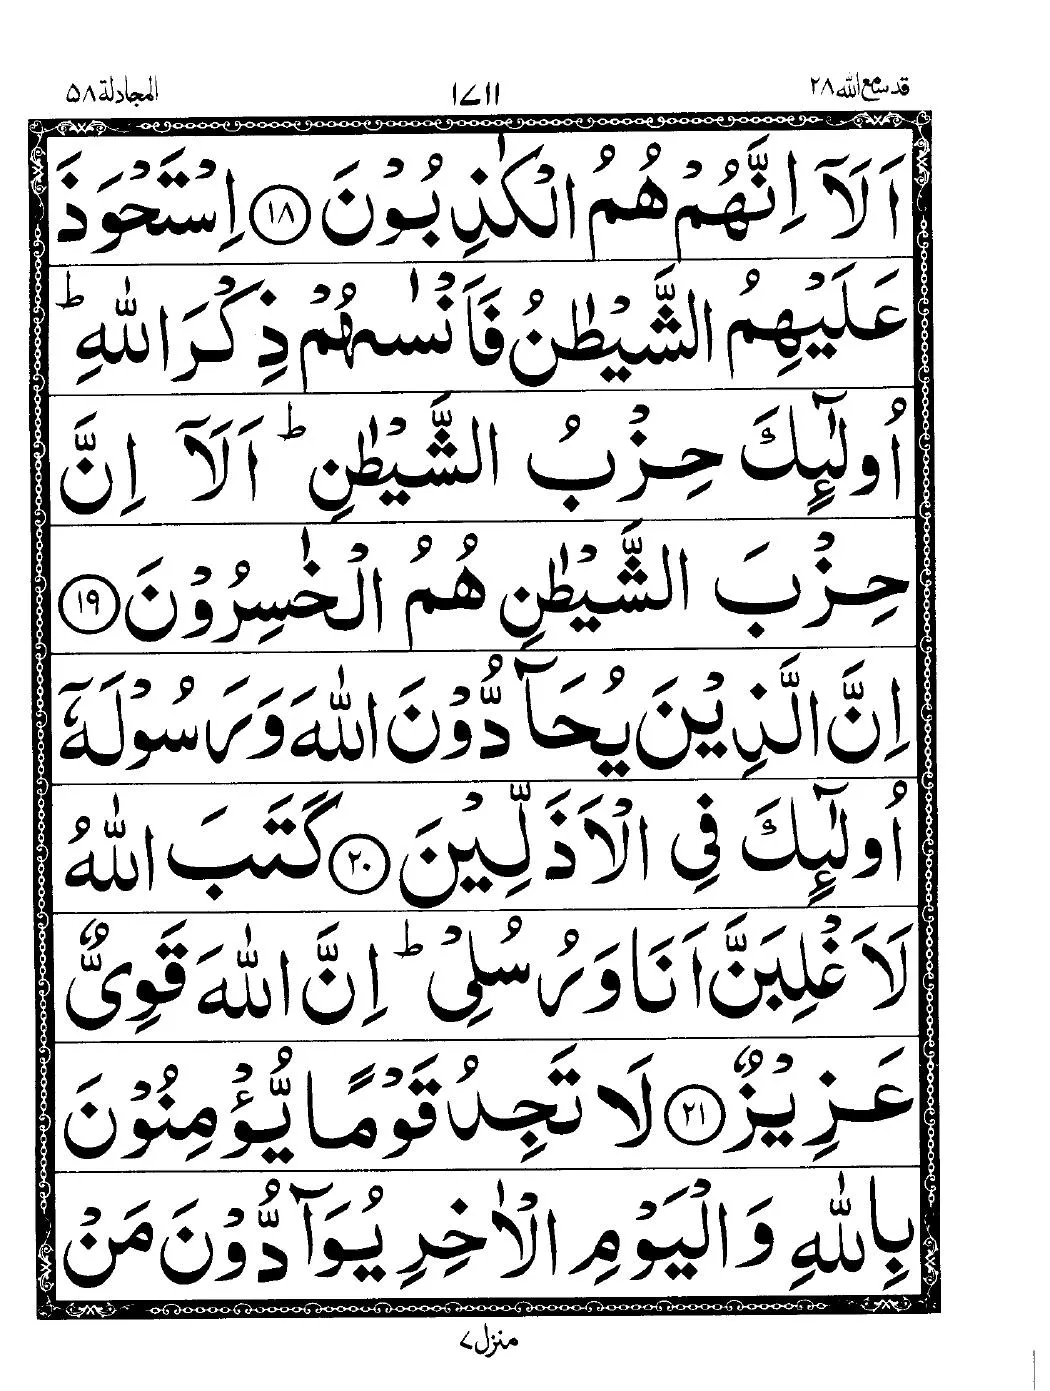 قد سمع الله ٢٨
١٧١١
المجادلة ٥٨
اَلَاۤ اِنَّهُمْ هُمُ الْكٰذِبُوْنَ ١٨ اِسْتَحْوَذَ
عَلَيْهِمُ الشَّيْطٰنُ فَاَنْسٰىهُمْ ذِكْرَ اللّٰهِ ؕ
اُولٰٓئِكَ حِزْبُ الشَّيْطٰنِ ؕ اَلَاۤ اِنَّ
حِزْبَ الشَّيْطٰنِ هُمُ الْخٰسِرُوْنَ ١٩
اِنَّ الَّذِيْنَ يُحَآدُّوْنَ اللّٰهَ وَرَسُوْلَهٗۤ
اُولٰٓئِكَ فِى الْاَذَلِّيْنَ ٢٠ كَتَبَ اللّٰهُ
لَاَغْلِبَنَّ اَنَا وَرُسُلِىْ ؕ اِنَّ اللّٰهَ قَوِىٌّ
عَزِيْزٌ ٢١ لَا تَجِدُ قَوْمًا يُّؤْمِنُوْنَ
بِاللّٰهِ وَالْيَوْمِ الْاٰخِرِ يُوَآدُّوْنَ مَنْ
منزل ٧